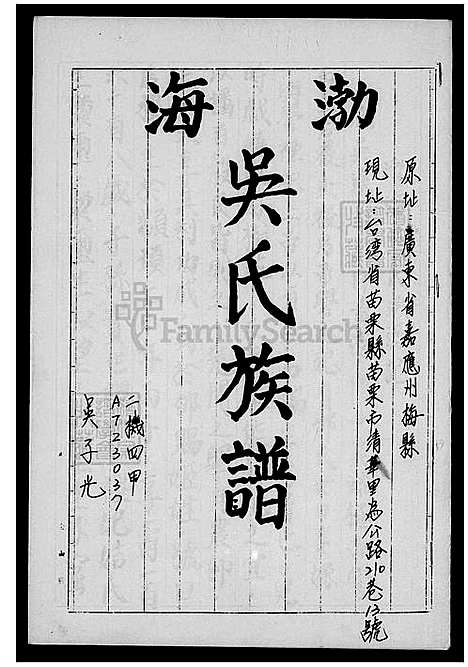 渤海
吳氏族譜
原址：廣東省嘉應州梅縣
現址：台湾省苗栗縣苗栗市清華里為公路210巷13號
二機四甲
A723037
吳子光
FamilySearch